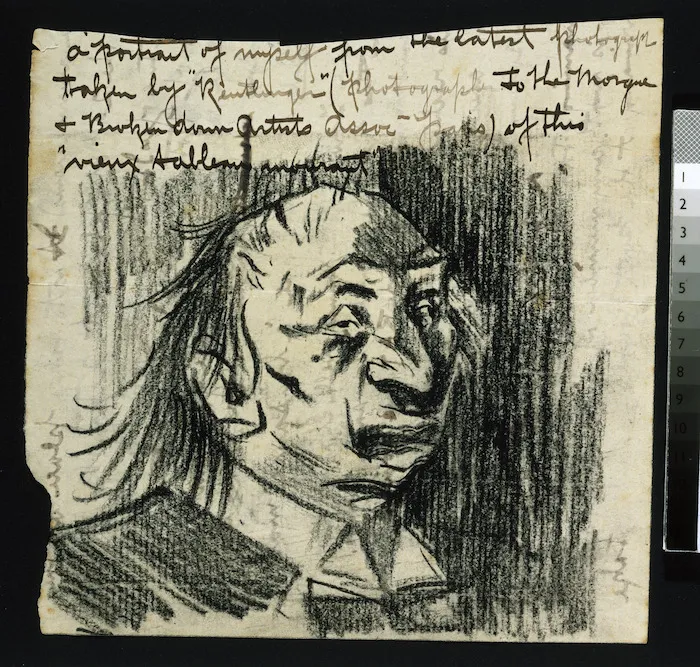 a portrait of myself from the latest photograph
taken by "Reutlinger" (photographer to the Morgue
& Broken down Artists Assoc- Paris) of this
"vieux tableau mourant"
1
2
3
4
5
6
7
8
9
10